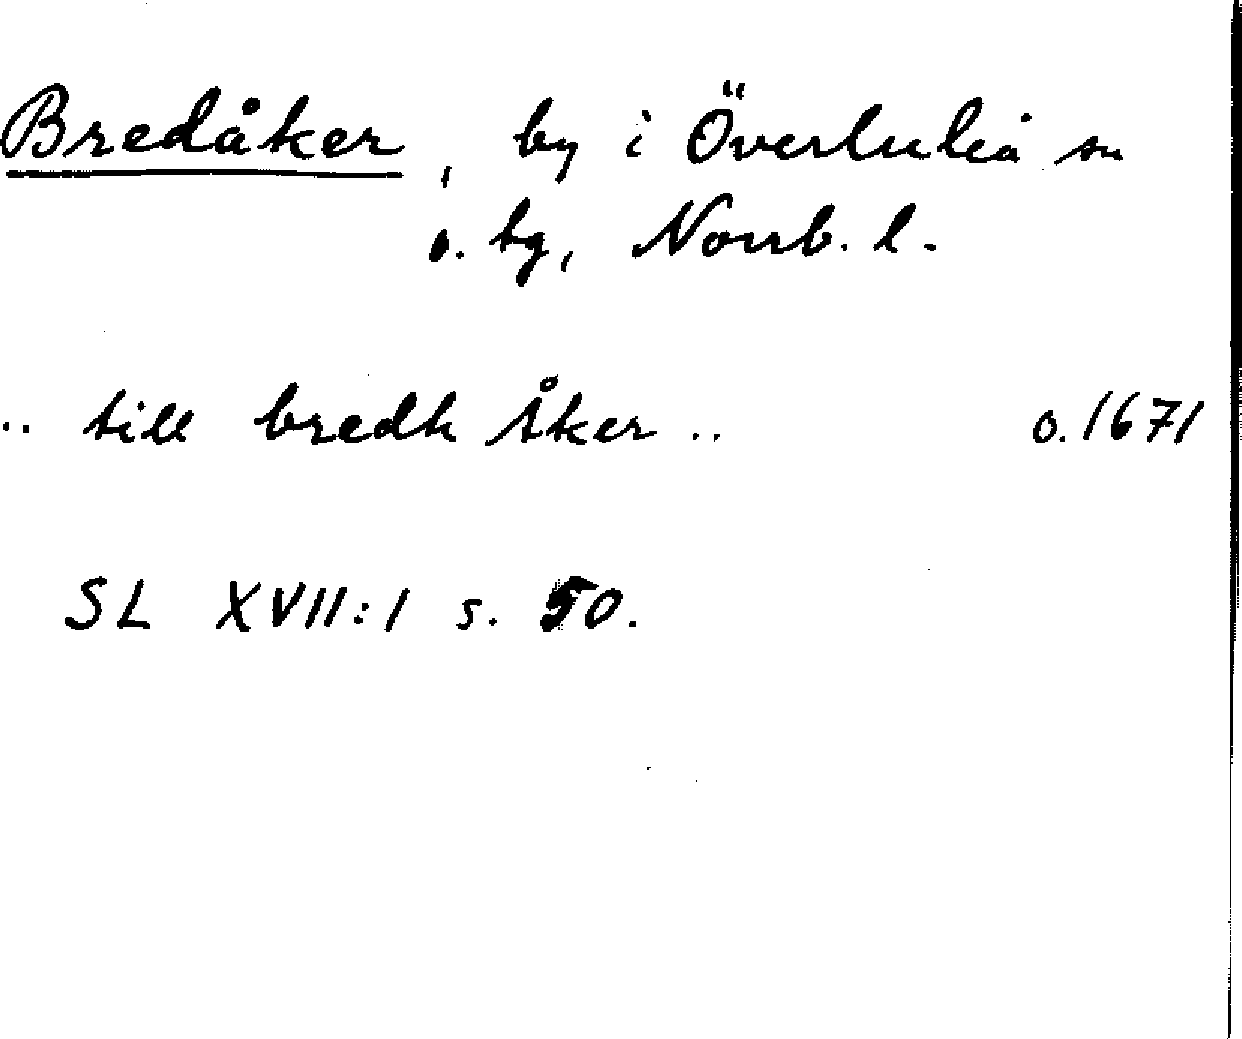 Bredåker, by i Överluleå sn
o. tg, Norrb. l.
.. till bredh Åker .. o. 1671
SL XVII:1 s. 50.